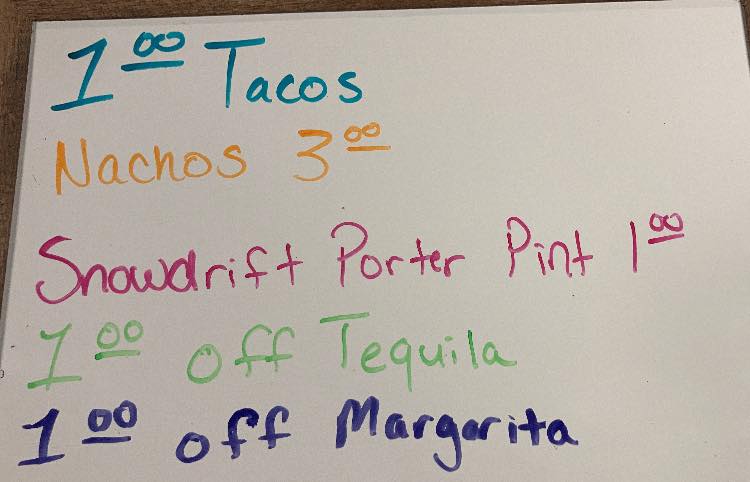 1 00 Tacos
Nachos 3 00
Snowdrift Porter Pint 1 00
1 00 off Tequila
1 00 off Margarita